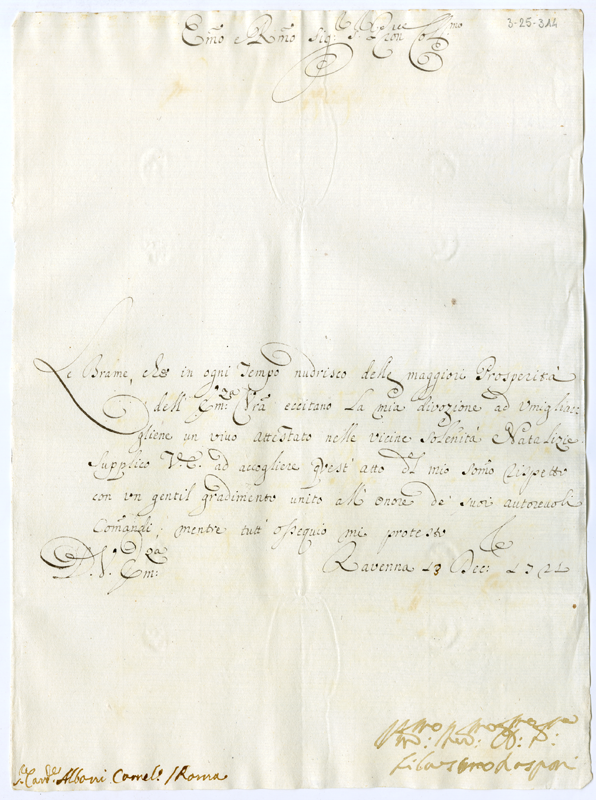 3-25-314
Emo e Rmo Sig: Pron Col:mo
Le Brame, che in ogni Tempo nudrisco delle maggiori Prosperità
dell' Em:za Vra eccitano la mia divozione ad Vmigliar-
gliene un vivo attestato nelle vicine Solenità Natalizie.
Supplico V. E. ad accogliere quest' atto del mio somo rispetto
con un gentil gradimento unito all' onore de' suoi autorevoli
Comandi; mentre tutt' ossequio mi protesto
D. V. Em:za
Ravenna 13 Dec: 1721
Card.e Albani Camel.o / Roma